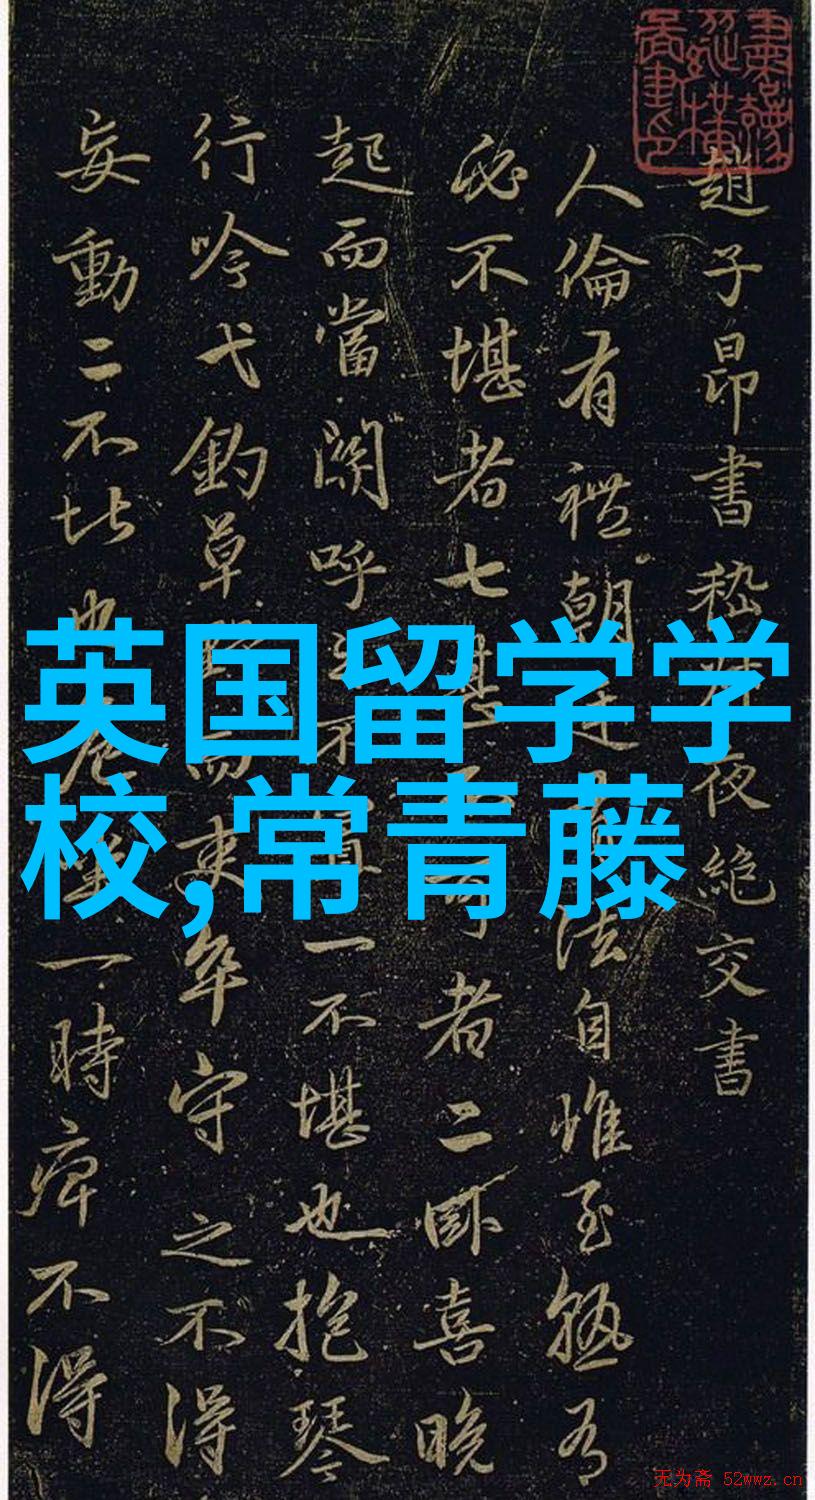 趙子昂書嵇叔夜絕交書
人倫有禮朝廷有法自惟至熟有
必不堪者七甚不可者二臥喜晚
起而當關呼之不置一不堪也抱琴
行吟弋釣草野而吏卒守之不得
妄動二不堪也危坐一時痺不得
英国留学学
校,常青藤
无为斋 52wwz.cn